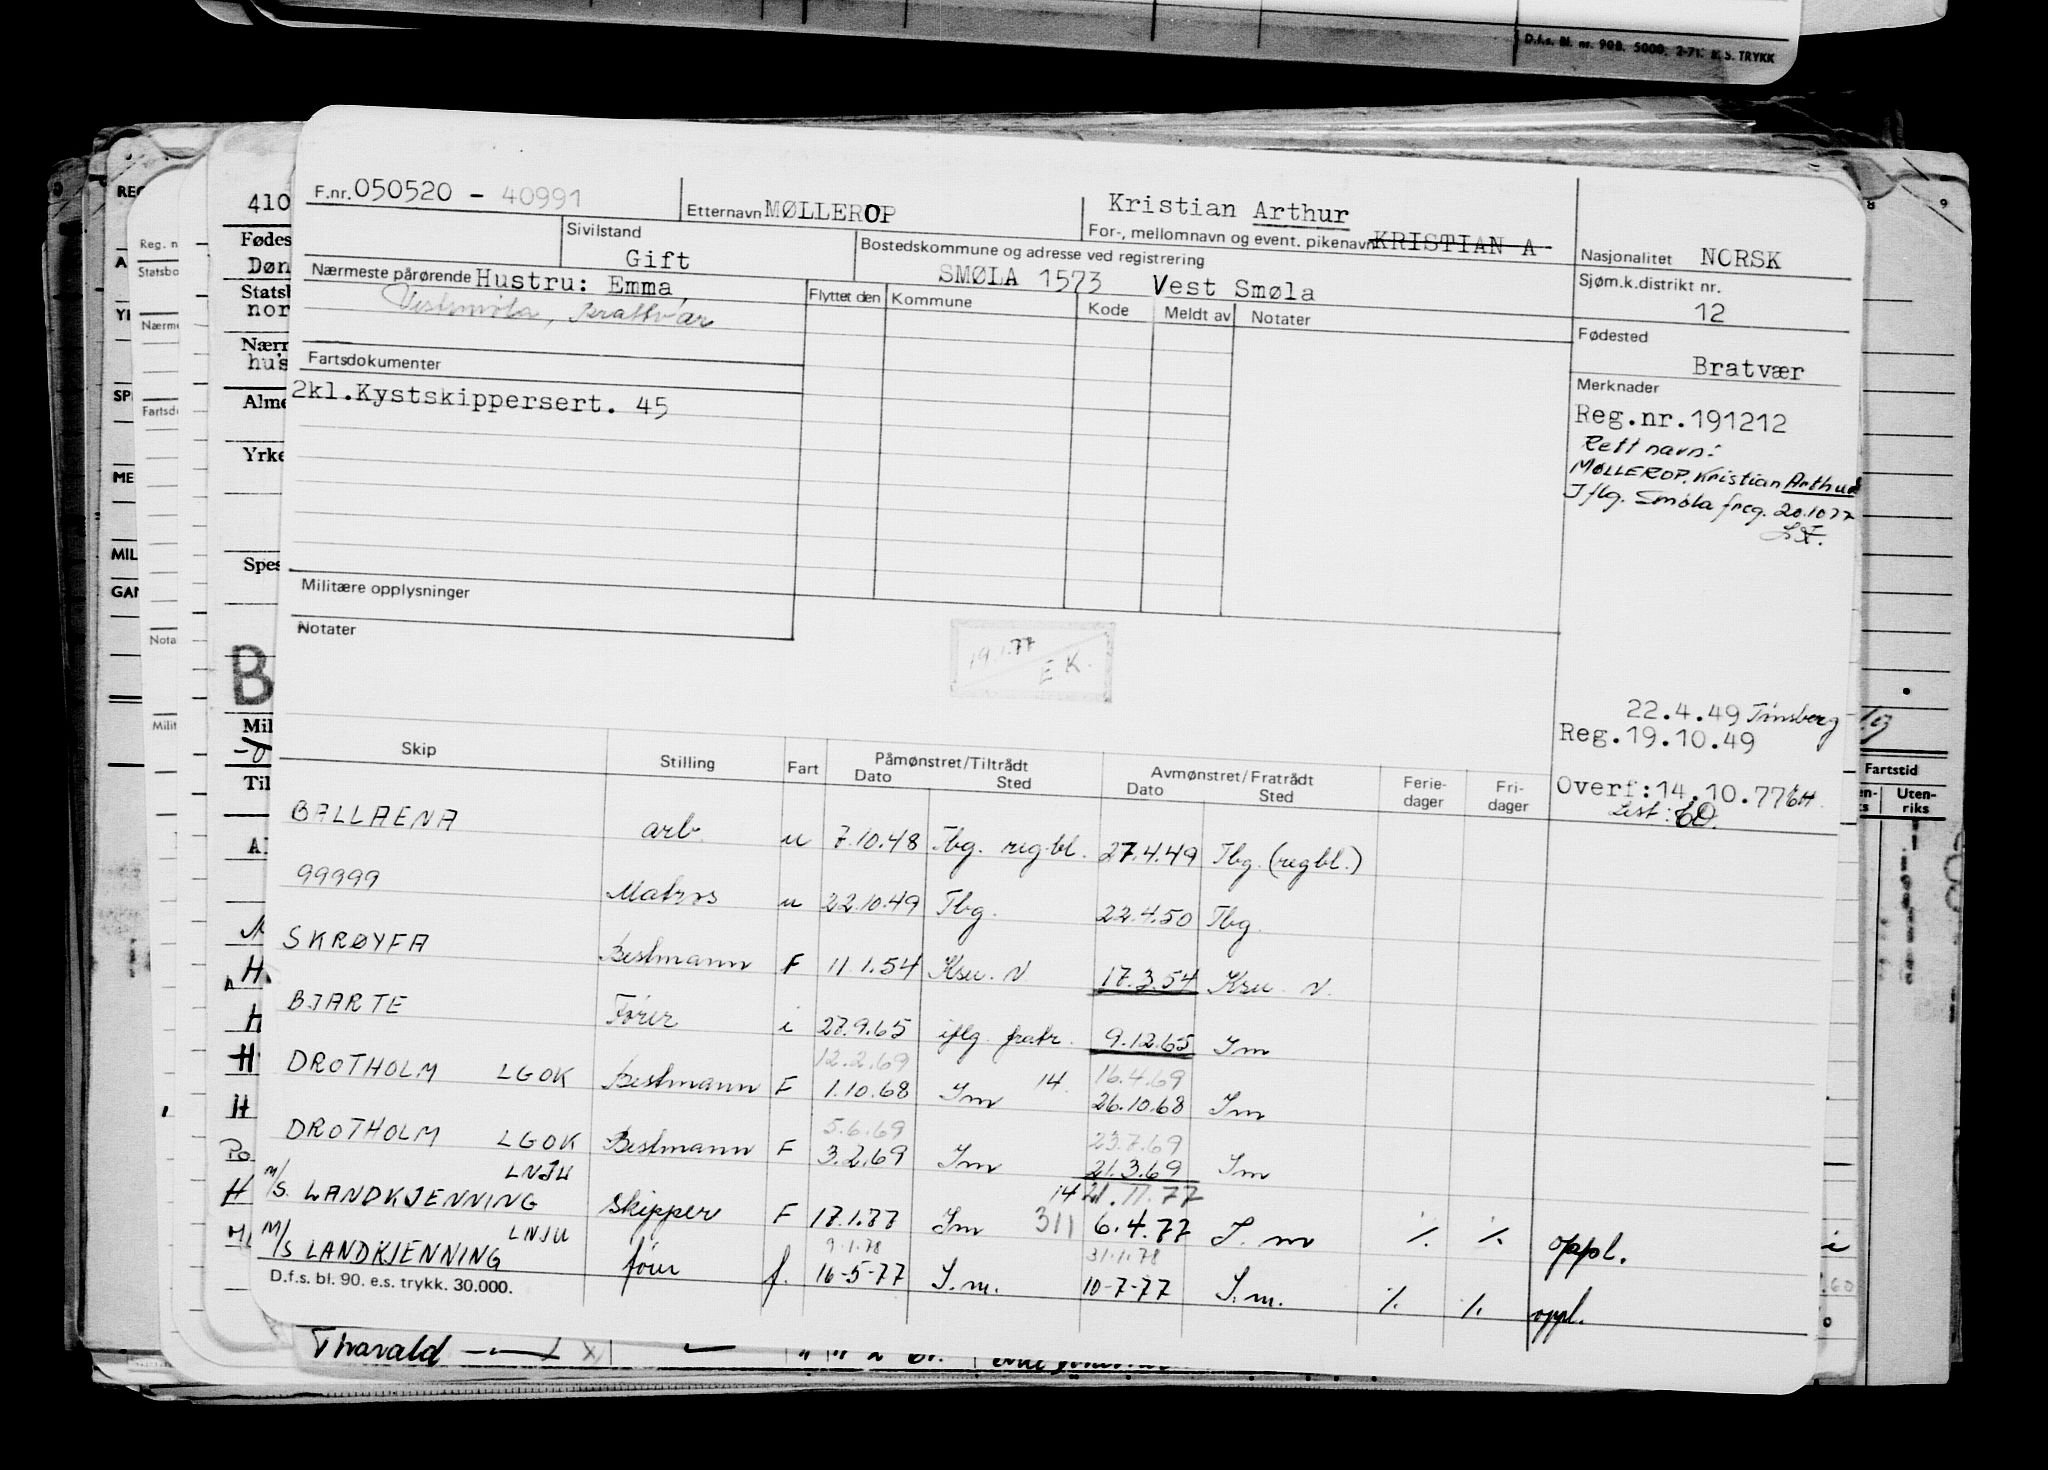 D.f.s. Bl. nr. 90B. 5000. 2-71. E.S. TRYKK
F.nr. 050520 - 40991
Etternavn MØLLEROP
Kristian Arthur
For-, mellomnavn og event. pikenavn KRISTIAN A
Nasjonalitet NORSK
Sivilstand
Gift
Bostedskommune og adresse ved registrering
SMØLA 1573 Vest Smøla
Sjøm.k.distrikt nr.
12
Nærmeste pårørende Hustru: Emma
Vestsmøla, Brattvær
Flyttet den Kommune Kode Meldt av Notater
Fødested
Bratvær
Fartsdokumenter
2kl.Kystskippersert. 45
Merknader
Reg.nr.191212
Rett navn:
MØLLEROP, Kristian Arthur
Iflg. Smøla freg. 20.10 77
Militære opplysninger
Notater
19.1.77
E K.
22.4.49 Tønsberg
Reg.19.10.49
Overf:14.10.77
List:
Skip Stilling Fart Påmønstret/Tiltrådt Avmønstret/Fratrådt Ferie- Fri-
Dato Sted Dato Sted dager dager
BALLAENA arb. u 7.10.48 Tbg. regbl. 27.4.49 Tbg. (regbl.)
99999 Matros u 22.10.49 Tbg. 22.4.50 Tbg.
SKRØYFA Bestmann F 11.1.54 Ksu. N 17.3.54 Ksu. N.
BJARTE Fører i 27.9.65 iflg. fratr. 9.12.65 Im
12.2.69 16.4.69
DROTHOLM LGOK Bestmann F 1.10.68 Im 14 26.10.68 Im
5.6.69 23.7.69
DROTHOLM LGOK Bestmann F 3.2.69 Im 21.3.69 Im
LNJU 14 21.11.77
M/S. LANDKJENNING Skipper F 17.1.77 Im 311 6.4.77 I.m % % oppl.
LNJU 9.1.78 31.1.78
M/S LANDKJENNING fører f. 16-5-77 I.m. 10-7-77 I.m. % % oppl.
D.f.s. bl. 90. e.s. trykk. 30.000.
Thorvald
410
Fødes
Døn
Statsb
nor
Nærn
hu's
Alme
Yrke
Spes
B
Mil
Til
Reg. n
Statsbo
Nærme
Fartsdo
Nota
Milit
REG
SPE
MIL
Fartstid
Uten-
riks